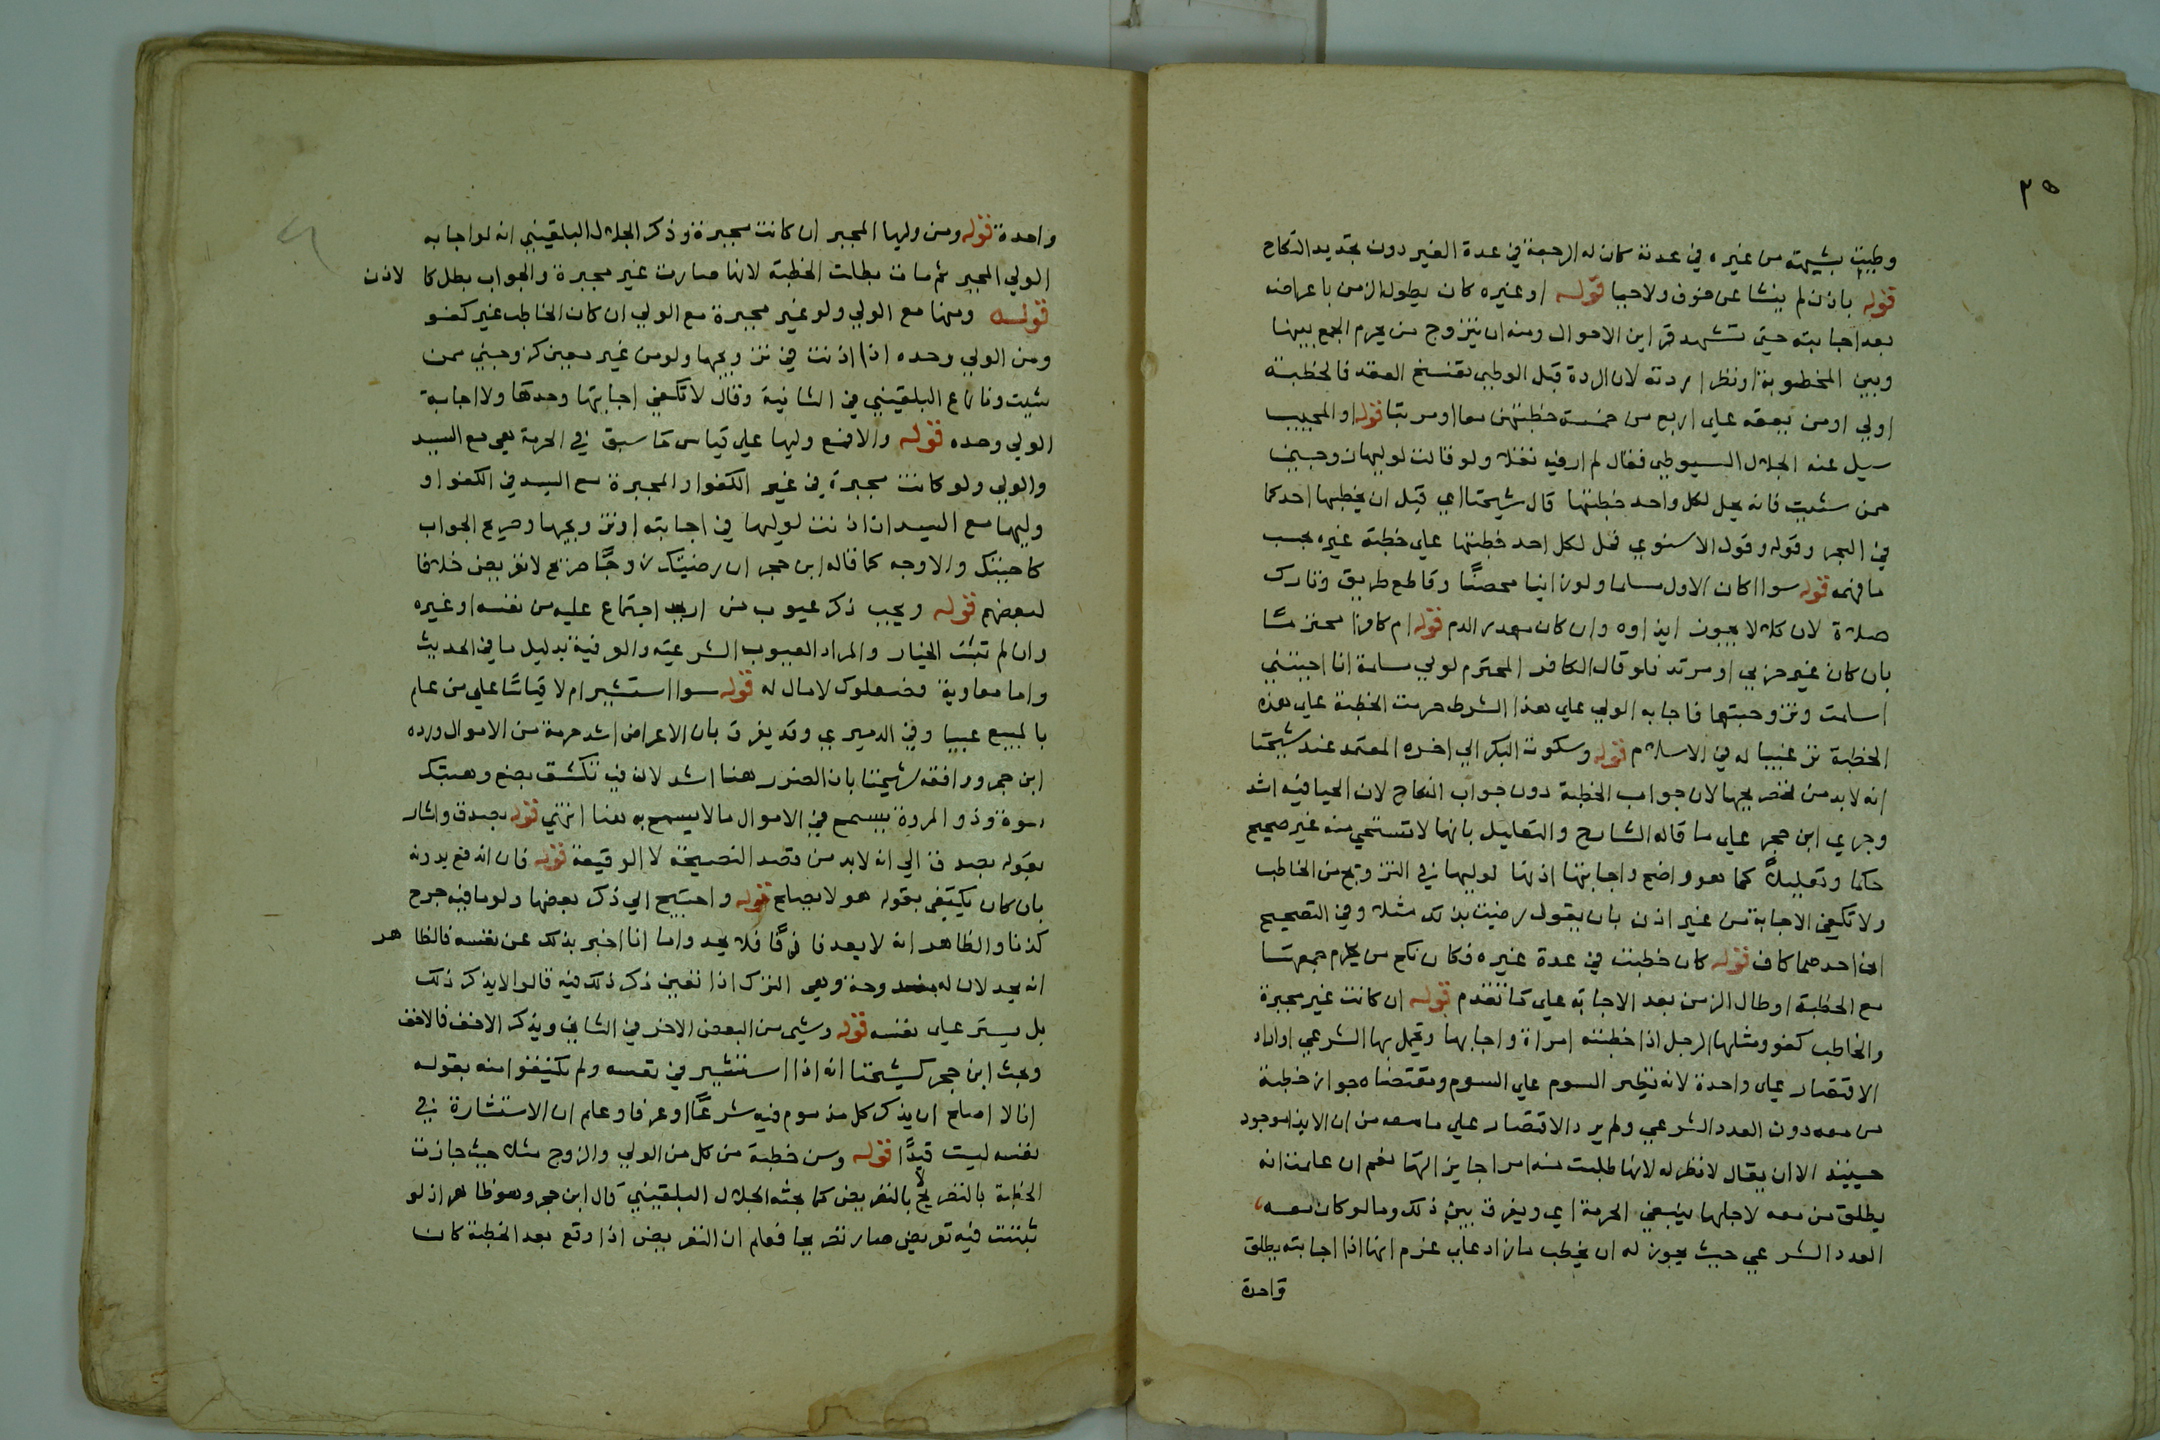 ٣٥
وطيت بشبهة من غيره في عدته كان له الرجعة في عدة الغير دون تجديد النكاح
قوله باذن لم ينشا عن خوف ولا حيا قوله او غيره كان يطول الزمن باعراضه
بعد اجابته حتى تشهد قراين الاحوال ومنه ان يتزوج من يحرم الجمع بينها
وبين المخطوبة او نظرا ردته لان الردة قبل الوطي تفسخ العقد فالخطبة
اولي او من يعقد علي اربع من خمسة خطبتهن معا او مرتبا قوله او المجيب
سيل عنه الجلال السيوطي فقال لم ار فيه نقلا ولو قالت لوليها زوجني
ممن شيت فانه يحل لكل واحد خطبتها قال شيخنا اي قبل ان يخطبها احد كما
في البحر وقوله وقول الاسنوي تحل لكل احد خطبتها علي خطبة غيره بحسب
ما فهمه قوله سوا اكان الاول مسلما ولو زانيا محصنًا وقاطع طريق وتارك
صلاة لان كلا لا يجوز ايذاوه وان كان مهدر الدم قوله ام كافرا محترمًا
بان كان غير حربي او مرتد فلو قال الكافر المحترم لولي مسلمة انا اجبتني
اسلمت وتزوجتها فاجابه الولي علي هذا الشرط حرمت الخطبة علي هذه
الخطبة ترغيبا له في الاسلام قوله وسكوت البكر الي اخره المعتمد عند شيخنا
انه لا بد من تصريحها لان جواب الخطبة دون جواب النكاح لان الحيا فيه اشد
وجري ابن حجر علي ما قاله الشارح والتعليل بانها لا تستحي منه غير صحيح
حكما وتعليلاً كما هو واضح واجابتها اذنها لوليها في التزويج من الخاطب
ولا تكفي الاجابة من غير اذن بان يقول رضيت بذلك مثلا وفي التصحيح
احدهما كاف قوله كان خطبت في عدة غيره فكان نكح من يحرم جمعها
مع الخطبة او طال الزمن بعد الاجابة علي ما تقدم قوله ان كانت غير مجبرة
والخاطب كفو ومثلها الرجل اذا خطبته امراة واجابها وتحمل بها الشرعي او اراد
الاقتصار علي واحدة لانه نظير السوم علي السوم ومقتضاه جواز خطبة
من معه دون العدد الشرعي ولم يرد الاقتصار علي ما معه من ان الايذا موجود
حينيذ الا ان يقال لا نظر له لانها طلبت منه امرا جايزا لها نعم ان علمت انه
يطلق من معه لاجلها ينبغي الحرمة اي ويفرق بين ذلك وما لو كان معه
العدد الشرعي حيث يجوز له ان يخطب ما زاد علي عزم انها اذا اجابته يطلق
واحدة
واحدة قوله ومن وليها المجبر ان كانت مجبرة وذكر الجلال البلقيني انه لو اجابه
الولي المجبر ثم مات بطلت الخطبة لانها صارت غير مجبرة والجواب بطل كالاذن
قوله ومنها مع الولي ولو غير مجبرة مع الولي ان كان الخاطب غير كفو
ومن الولي وحده اذا اذنت في تزويجها ولو من غير معين كزوجني ممن
شيت ونازع البلقيني في الثانية وقال لا تكفي اجابتها وحدها ولا اجابة
الولي وحده قوله والا فمع وليها علي قياس ما سبق في الحرة هي مع السيد
والولي ولو كانت مجبرة في غير الكفو او المجبرة مع السيد في الكفو او
وليها مع السيد ان اذنت لوليها في اجابته او تزويجها وصريح الجواب
كاجبتك والاوجه كما قاله ابن حجر ان رضيتك زوجًا صريح لا تعريض خلافا
لبعضهم قوله ويجب ذكر عيوب من اريد اجتماع عليه من نفسه او غيره
وان لم تثبت الخيار والمراد العيوب الشرعية والعرفية بدليل ما في الحديث
واما معاوية فصعلوك لا مال له قوله سوا استشير ام لا قياسًا علي من علم
بالمبيع عيبا وفي الدميري وقد يفرق بان الاعراض اشد حرمة من الاموال ورده
ابن حجر ووافقه شيخنا بان الضرر هنا اشد لان فيه تكشف بضع وهتك
سوة وذو المروة يسمح في الاموال ما لا يسمح به هنا انتهي قوله بصدق واشار
بقوله بصدق الي انه لا بد من قصد النصيحة لا الوقيعة قوله فان اندفع بدونه
بان كان يكتفي بقوله هو لا يصلح قوله واحتيج الي ذكر بعضها ولو ما فيه جرح
كزنا والظاهر انه لا يعد قاذفًا فلا يحد واما انا اخبر بذلك عن نفسه فالظاهر
انه يحد لان له مندوحة وهي الترك اذا تعين ذكر ذلك فيه قالوا لا يذكر ذلك
بل يستر علي نفسه قوله وشي من البعض الاخر في الثاني ويذكر الاخف فالاخف
وبحث ابن حجر كشيخنا انه اذا استشير في نفسه ولم يكتفوا منه بقوله
انا لا اصلح ان يذكر كل مذموم فيه شرعًا او عرفا وعلم ان الاستشارة في
نفسه ليست قيدًا قوله وسن خطبة من كل من الولي والزوج مثله حيث جازت
الخطبة بالتصريح لا بالتعريض كما بحثه الجلال البلقيني قال ابن حجر وهو ظاهر اذ لو
ثبتت فيه تعريض صار تصريحا فعلم ان التعريض اذا وقع بعد الخطبة كان